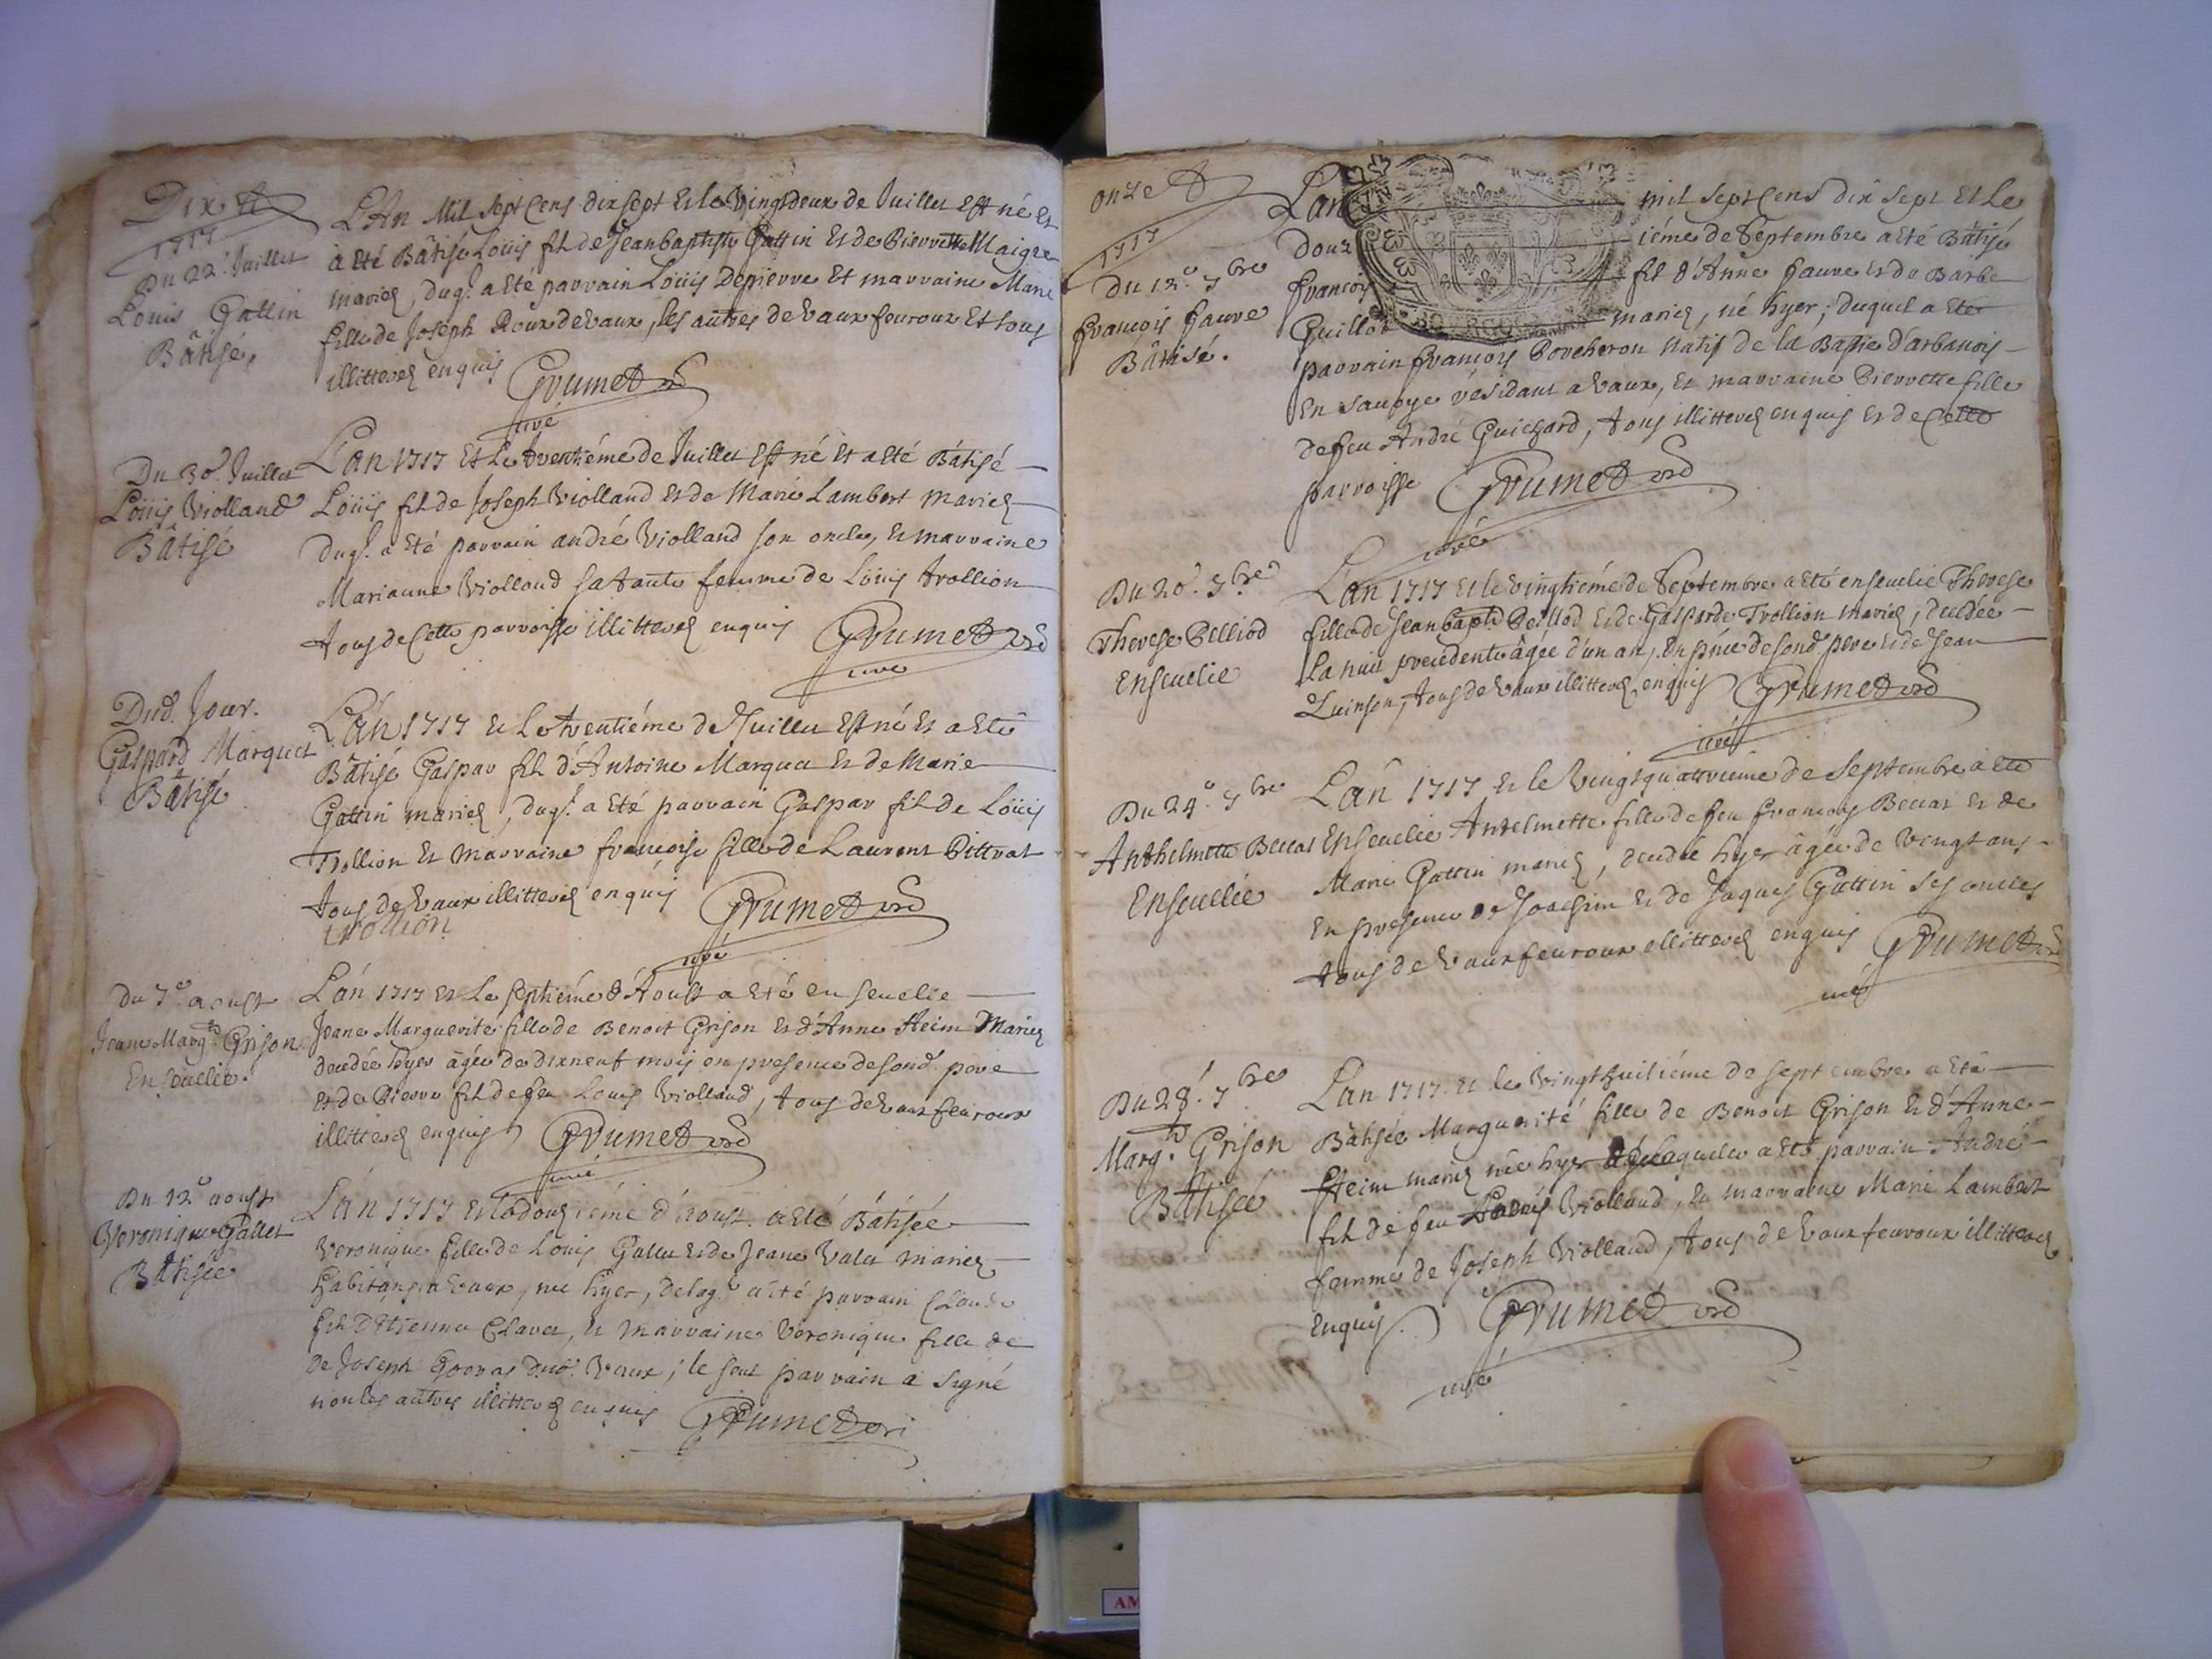 Dix
1717
Du 22e Juillet
Louis Gattin
Bâtisé
L'An Mil Sept Cens dix sept Et le Vingtdeux de Juillet Est né Et
a Eté Bâtisé Loüis fil de Jean baptiste Gattin Et de Pierrette Maigre
mariez, duql a Eté parrain Loüis Depierre Et marraine Marie
fille de Joseph Roux de Vaux, les autres de Vaux feuroux Et tous
illitterez enquis Grumet
curé
Du 30e Juillet
Loüis Violland
Bâtisé
L'an 1717 Et Le trentiéme de Juillet Est né Et a Eté Bâtisé
Loüis fil de Joseph Violland Et de Marie Lambert mariez
duql a Eté parrain andré Violland son oncle, Et marraine
Marianne Violland sa tante femme de Loüis trollion
tous de Cette parroisse illitterez enquis Grumet
curé
Dud. Jour.
Gaspard Marquet
Bâtisé
L'an 1717 Et Le trentiéme de Juillet Est né Et a Eté
Bâtisé Gaspar fil d'Antoine Marquet Et de Marie
Gattin mariez, duql a Eté parrain Gaspar fil de Loüis
Trollion Et marraine françoise fille de Laurent Pittrat
tous de Vaux illitterez enquis Grumet
trollion
curé
Du 7e aoust
Jeane Margte Grison
Enseuelie.
L'an 1717 Et Le septiéme d'Aoust a Eté enseuelie
Jeane Marguerite fille de Benoit Grison Et d'Anne Heim Mariez
decedée hyer âgée de dixneuf mois en presence de sond. pere
Et de Pierre fil de feu Louis Violland, tous de Vaux feuroux
illitterez enquis Grumet
curé
Du 12e aoust
Veronique Gallet
Bâtisée
L'an 1717 Et Le douziéme d'Aoust a Eté Bâtisée
Veronique fille de Louis Gallet Et de Jeane Valet mariez
habitans a Vaux, née hyer, de laqle a été parrain Claude
fil d'Etienne Claret, Et marraine Veronique fille de
de Joseph Gorras dud. Vaux; le seul parrain a signé
non les autres illitterez enquis Grumet
onze
1717
Du 12e 7bre
françois faure
Bâtisé.
L'an mil sept Cens dix sept Et Le
douziéme de Septembre a Eté Bâtisé
françois fil d'Anne faure Et de Barbe
Guillot mariez, né hyer; duquel a Eté
parrain françois Porcheron natif de la Batie d'arbanois
En sauoye residant a Vaux, Et marraine Pierrette fille
de feu André Guichard, tous illitterez enquis Et de Cette
parroisse Grumet
curé
Du 20e 7bre
Therese Pelliod
Enseuelie
L'an 1717 Et le vinghtiéme de Septembre a Eté enseuelie Therese
fille de Jean bapte Peillod Et de Gasparde Trollion mariez, decedée
la nuit precedente âgée d'un an, En pnce de sond. pere Et de Jean
Quinson, tous de Vaux illitterez enquis Grumet
curé
Du 24e 7bre
Anthelmette Beccat
Enseuelie
L'an 1717 Et le Vingtquattriéme de Septembre a Eté
Enseuelie Antelmette fille de feu françois Beccat Et de
Marie Gattin mariez, decedée hyer âgée de vingt ans
En presence de Joachim Et de Jaques Gattin ses oncles
tous de Vaux feuroux illitterez enquis Grumet
curé
Du 28e 7bre
Margte Grison
Bâtisée
L'an 1717 Et le Vingthuitiéme de Septembre a Eté
Bâtisée Marguerite fille de Benoit Grison Et d'Anne
Heim mariez née hyer de laquelle a Eté parrain André
fil de feu Louis Violland, Et marraine Marie Lambert
femme de Joseph Violland, tous de Vaux feuroux illitterez
enquis. Grumet
curé
AM